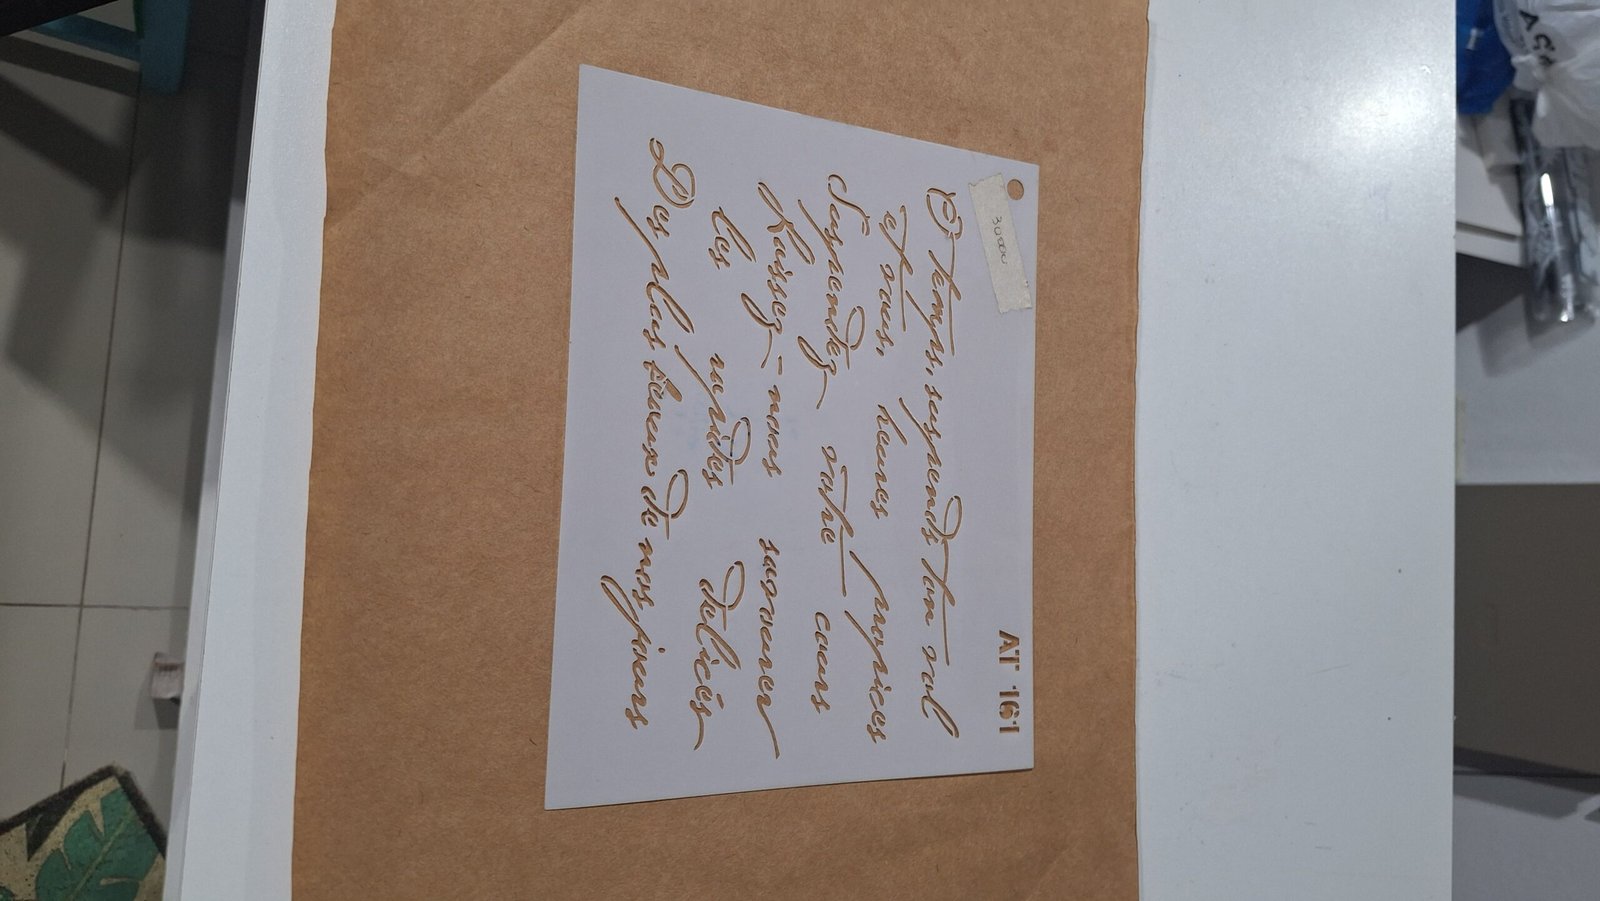 AT 161
30000
O temps, suspends ton vol
et vous, heures propices
Suspendez votre cours
Laissez-nous savourer
les rapides délices
Des plus beaux de nos jours